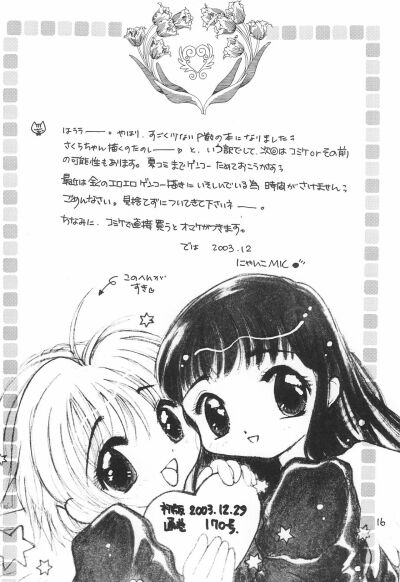 はうう───。やはり、すごく少ないP数の本になりました;
さくらちゃん描くのたのし───♡と、いう訳でして、次回はコミケorその前
の可能性もあります。夏コミまでゲンコーためておこうかな;
最近は金のエロエロゲンコー描きにいそしんでいる為、時間がさけません;
ごめんなさい。見捨てずについてきて下さいネ──。
ちなみに、コミケで直接買うとオマケがつきます。
では 2003.12
にゃんこMIC
このへんが
すき♡
初版 2003.12.29
通巻 170号.
16